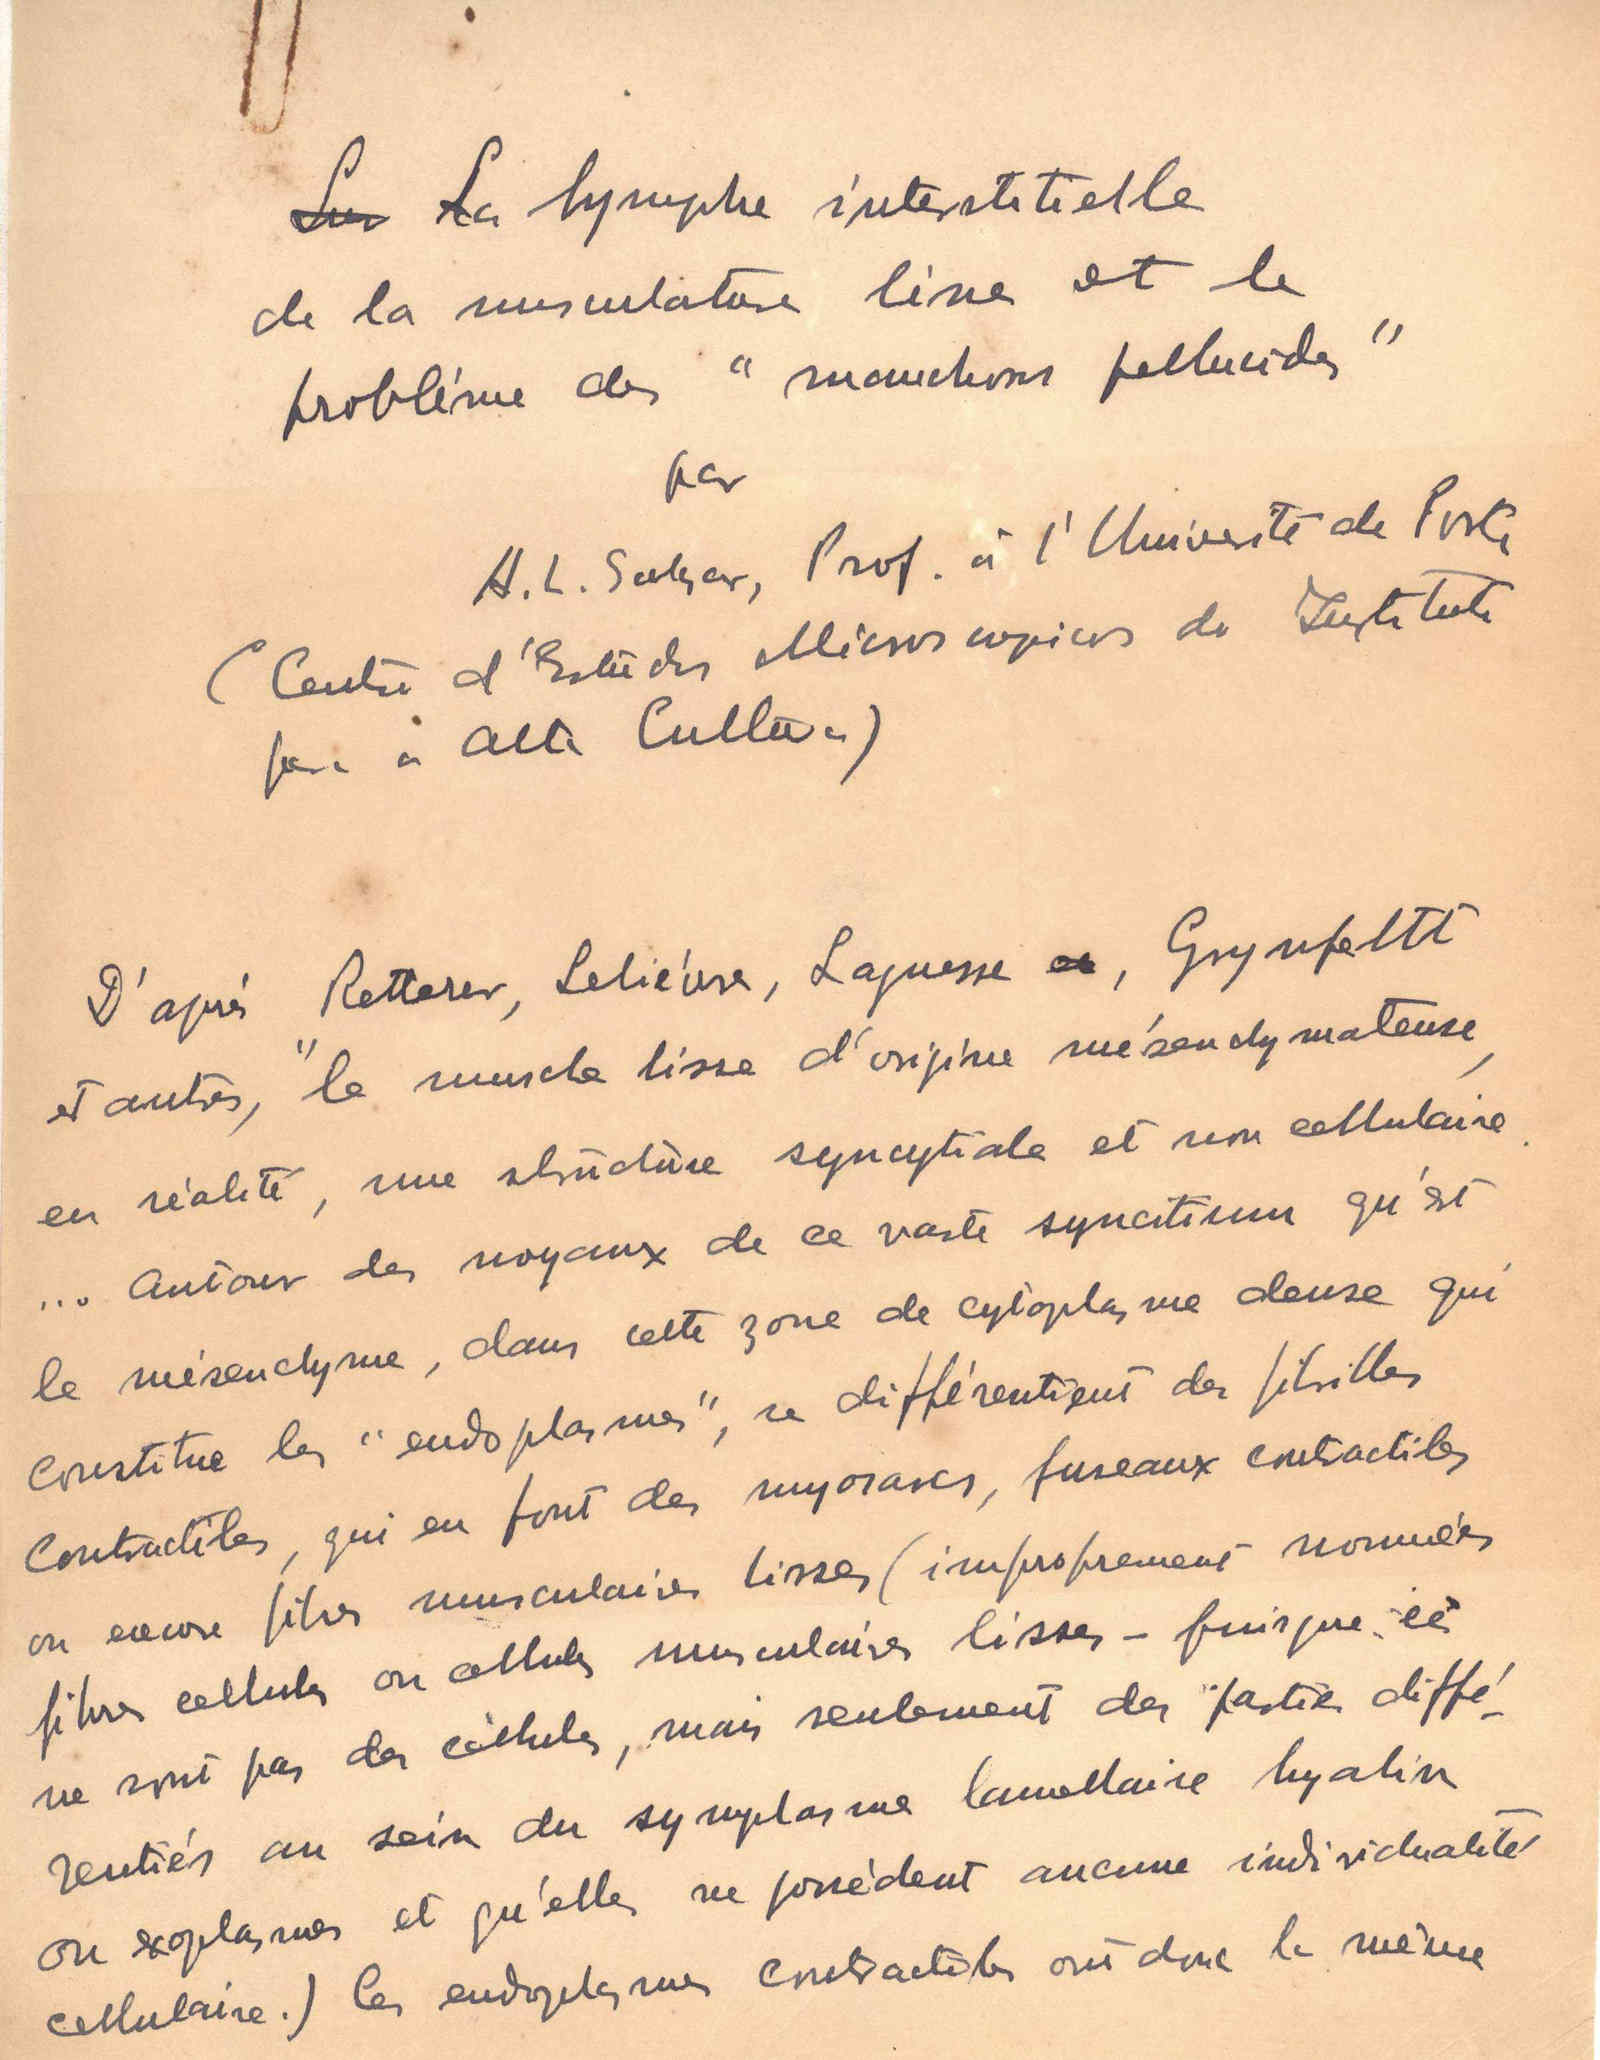 Sur La lymphe interstitielle
de la musculature lisse et le
problème des "manchons pellucides"
par
A. L. Salazar, Prof. à l'Université de Porto
(Centre d'Estudos Microscopicos do Instituto
para a Alta Cultura)
D'après Retterer, Lelièvre, Laguesse et, Grynfeltt
et autres, "le muscle lisse d'origine mésenchymateuse,
en réalité, une structure syncytiale et non cellulaire.
... Autour des noyaux de ce vaste syncitium qu'est
le mésenchyme, dans cette zone de cytoplasme dense qui
constitue les "endoplasmes", se différentient des fibrilles
contractiles, qui en font des myosaxes, fuseaux contractiles
ou encore fibres musculaires lisses (improprement nommées
fibres cellules ou cellules musculaires lisses - puisque ce
ne sont pas des cellules, mais seulement des parties diffé-
rentiés au sein du symplasme lamellaire hyalin
ou exoplasmes et qu'elles ne possèdent aucune individualité
cellulaire.) Les endoplasmes contractiles ont donc la même